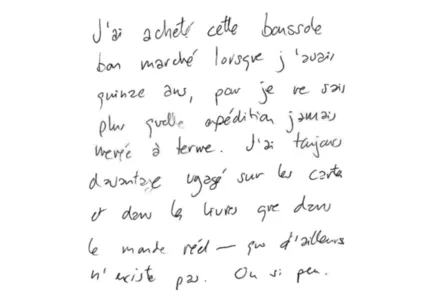 J'ai acheté cette boussole
bon marché lorsque j'avais
quinze ans, pour je ne sais
plus quelle expédition jamais
menée à terme. J'ai toujours
davantage voyagé sur les cartes
et dans les livres que dans
le monde réel — qui d'ailleurs
n'existe pas. Ou si peu.